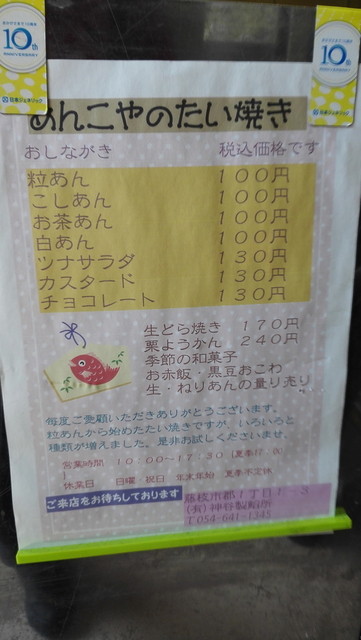 10th
10th
あんこやのたい焼き
おしながき 税込価格です
粒あん 100円
こしあん 100円
お茶あん 100円
白あん 100円
ツナサラダ 130円
カスタード 130円
チョコレート 130円
生どら焼き 170円
栗ようかん 240円
季節の和菓子
お赤飯・黒豆おこわ
生・ねりあんの量り売り
毎度ご愛顧いただきありがとうございます。
粒あんから始めたたい焼きですが、いろいろと
種類が増えました。是非お試しくださいませ。
営業時間 10:00~17:30
休業日 日曜・祝日 年末年始 夏季不定休
ご来店をお待ちしております
藤枝市郡1丁目1-
(有)神谷製餡所
T054-641-1345